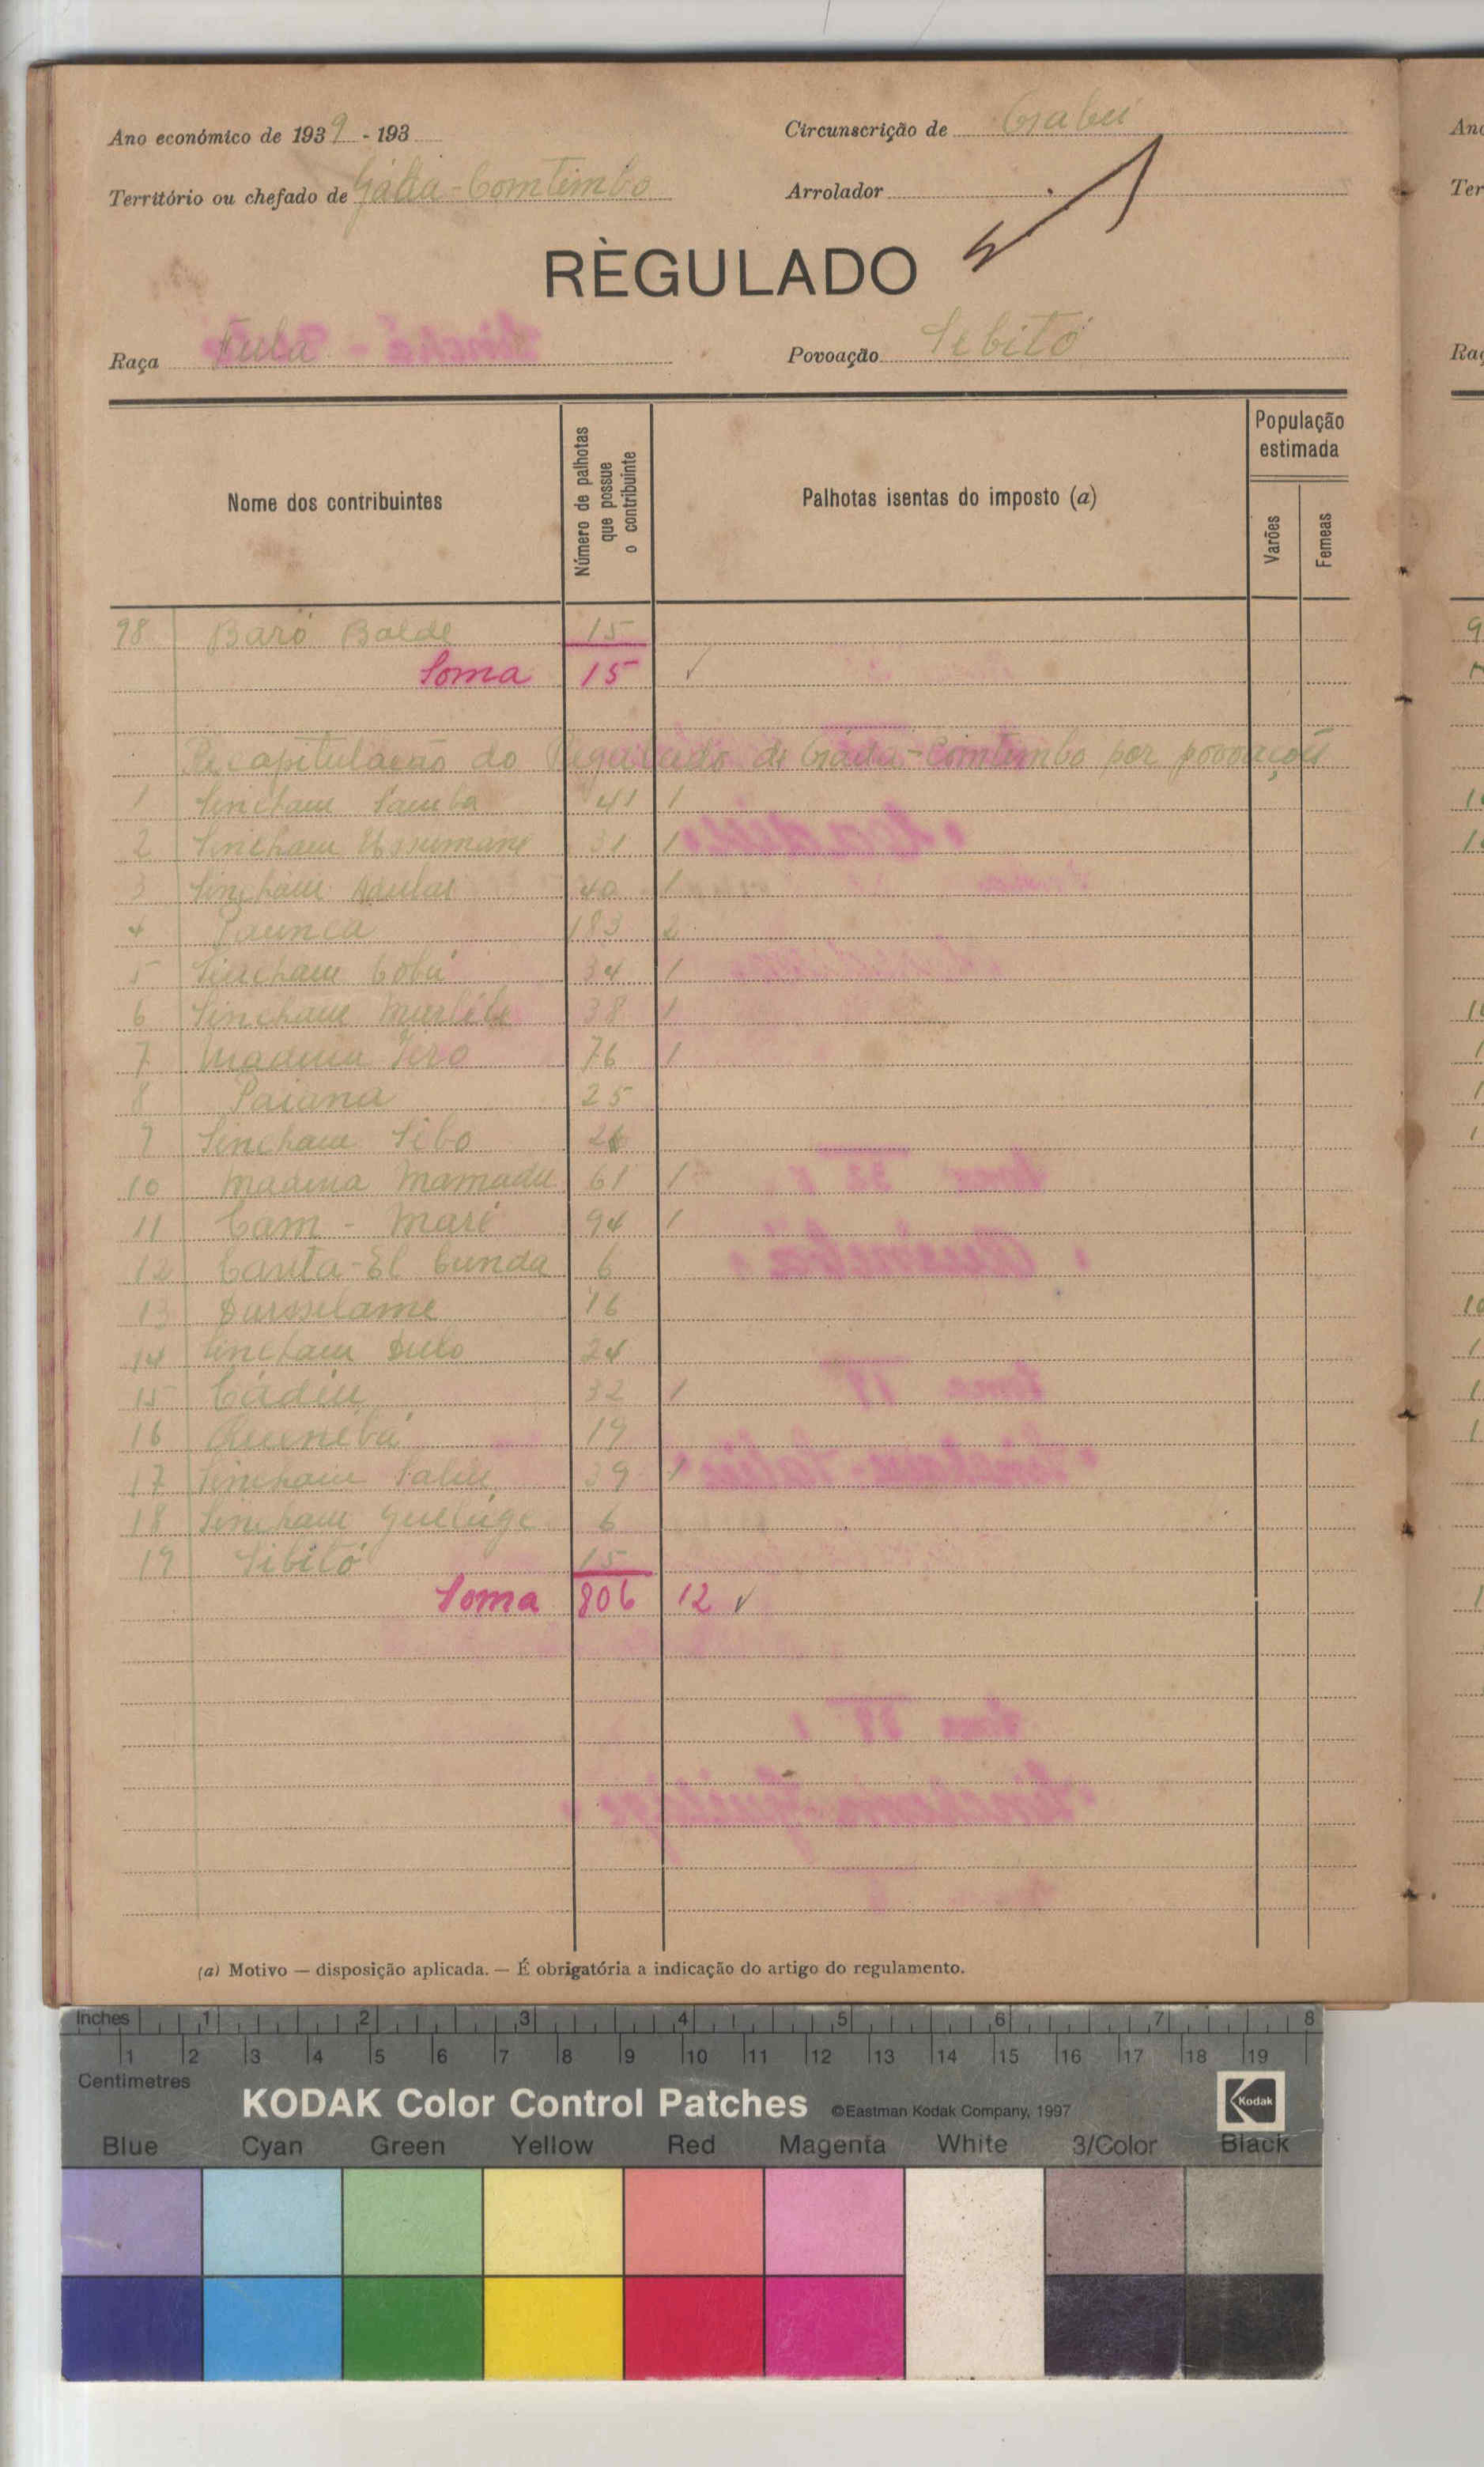 Ano económico de 1939 - 193
Circunscrição de Gabú
Território ou chefado de Gáda-Comtimbo
Arrolador
RÈGULADO
Raça Fula
Povoação Sibitó
Nome dos contribuintes
Número de palhotas que possue o contribuinte
Palhotas isentas do imposto (a)
População estimada
Varões
Femeas
98 Baró Balde 15
Soma 15 ✓
Recapitulação do Regulado de Gáda-Comtimbo por povoações
1 Sincham Samba 41 1
2 Sincham Ussumane 31 1
3 Sincham 40 1
4 Paunca 183 2
5 Sincham Cobá 34 1
6 Sincham 38 1
7 Madina Tero 76 1
8 Paiana 25
9 Sincham Sibo 26
10 Madina Mamadu 61 1
11 Cam - Maré 94 1
12 Canta-El Cunda 6
13 Duroselame 16
14 Sincham Dulo 24
15 Cádiu 32 1
16 Quenebá 19
17 Sincham Saliu 39 1
18 Sincham Guelúge 6
19 Sibitó 15
Soma 806 12 ✓
(a) Motivo — disposição aplicada. — É obrigatória a indicação do artigo do regulamento.
Inches 1 2 3 4 5 6 7 8
1 2 3 4 5 6 7 8 9 10 11 12 13 14 15 16 17 18 19
Centimetres
KODAK Color Control Patches ©Eastman Kodak Company, 1997 Kodak
Blue Cyan Green Yellow Red Magenta White 3/Color Black